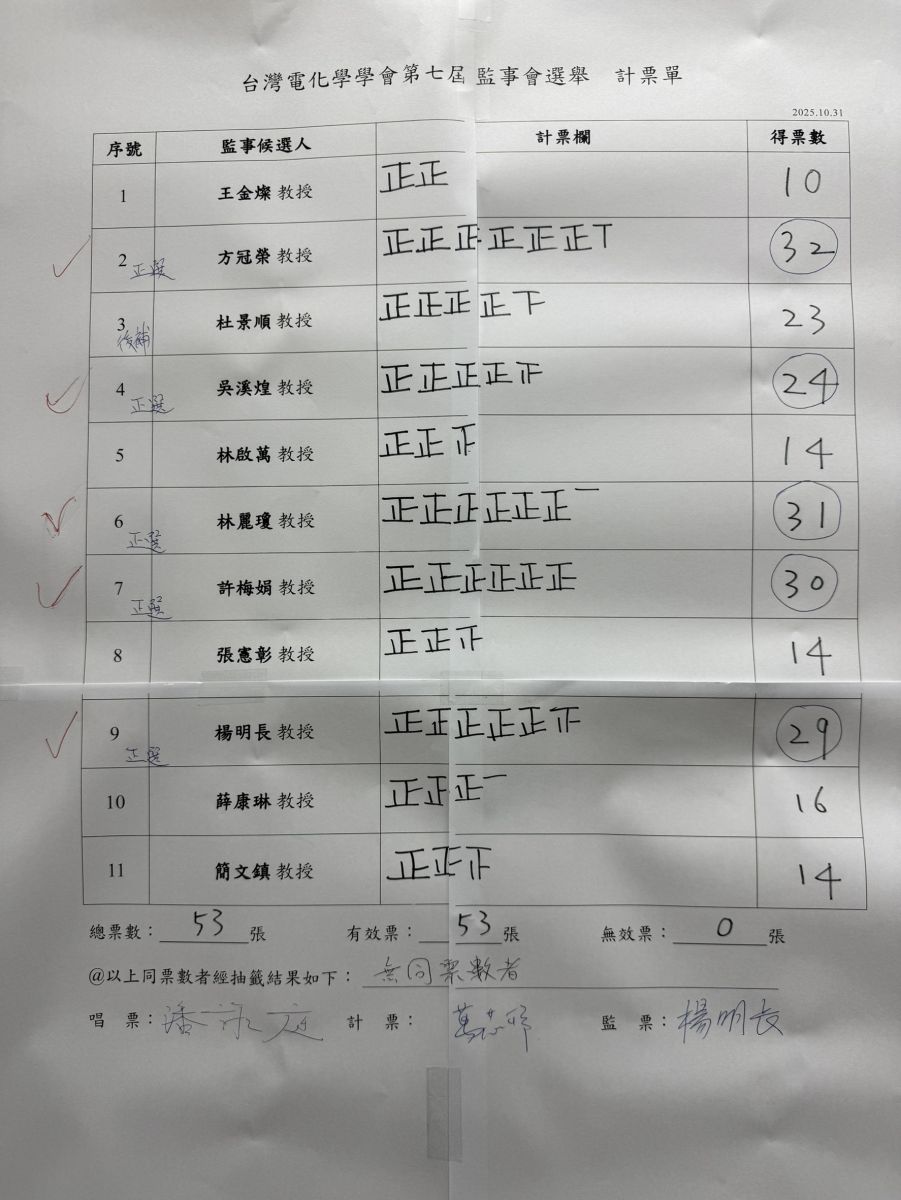 台灣電化學學會第七屆監事會選舉 計票單
2025.10.31
序號 監事候選人 計票欄 得票數
1 王金燦 教授 正正 10
2 正選 方冠榮 教授 正正正正正正丅 32
3 後補 杜景順 教授 正正正正下 23
4 正選 吳溪煌 教授 正正正正 24
5 林啟萬 教授 正正 14
6 正選 林麗瓊 教授 正正正正正正一 31
7 正選 許梅娟 教授 正正正正正正 30
8 張憲彰 教授 正正 14
9 正選 楊明長 教授 正正正正正 29
10 薛康琳 教授 正正正一 16
11 簡文鎮 教授 正正 14
總票數:53張 有效票:53張 無效票:0張
@以上同票數者經抽籤結果如下:無同票數者
唱 票: 計 票: 監 票:楊明長